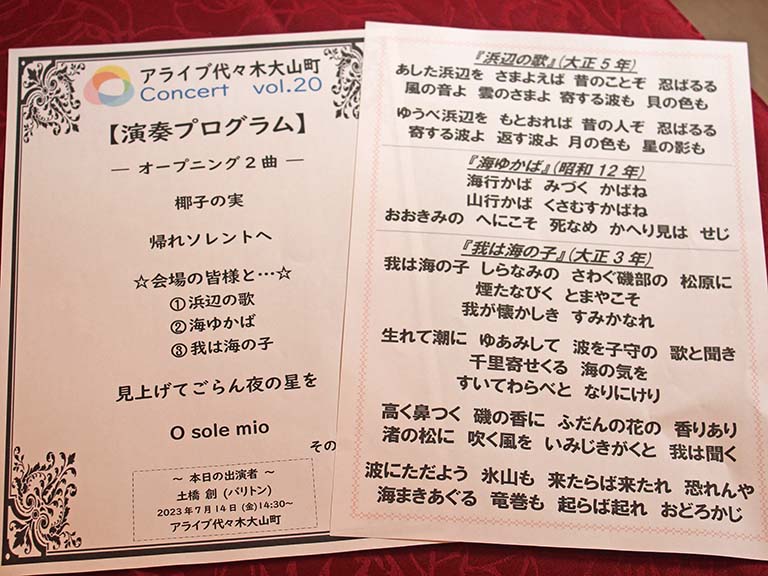 アライブ代々木大山町
Concert vol.20
【演奏プログラム】
― オープニング2曲 ―
椰子の実
帰れソレントへ
☆会場の皆様と…☆
①浜辺の歌
②海ゆかば
③我は海の子
見上げてごらん夜の星を
O sole mio
その
～ 本日の出演者 ～
土橋 創 (バリトン)
2023年7月14日 (金)14:30～
アライブ代々木大山町
『浜辺の歌』(大正5年)
あした浜辺を さまよえば 昔のことぞ 忍ばるる
風の音よ 雲のさまよ 寄する波も 貝の色も
ゆうべ浜辺を もとおれば 昔の人ぞ 忍ばるる
寄する波よ 返す波よ 月の色も 星の影も
『海ゆかば』(昭和12年)
海行かば みづく かばね
山行かば くさむすかばね
おおきみの へにこそ 死なめ かへり見は せじ
『我は海の子』(大正3年)
我は海の子 しらなみの さわぐ磯部の 松原に
煙たなびく とまやこそ
我が懐かしき すみかなれ
生れて潮に ゆあみして 波を子守の 歌と聞き
千里寄せくる 海の気を
すいてわらべと なりにけり
高く鼻つく 磯の香に ふだんの花の 香りあり
渚の松に 吹く風を いみじきがくと 我は聞く
波にただよう 氷山も 来たらば来たれ 恐れんや
海まきあぐる 竜巻も 起らば起れ おどろかじ